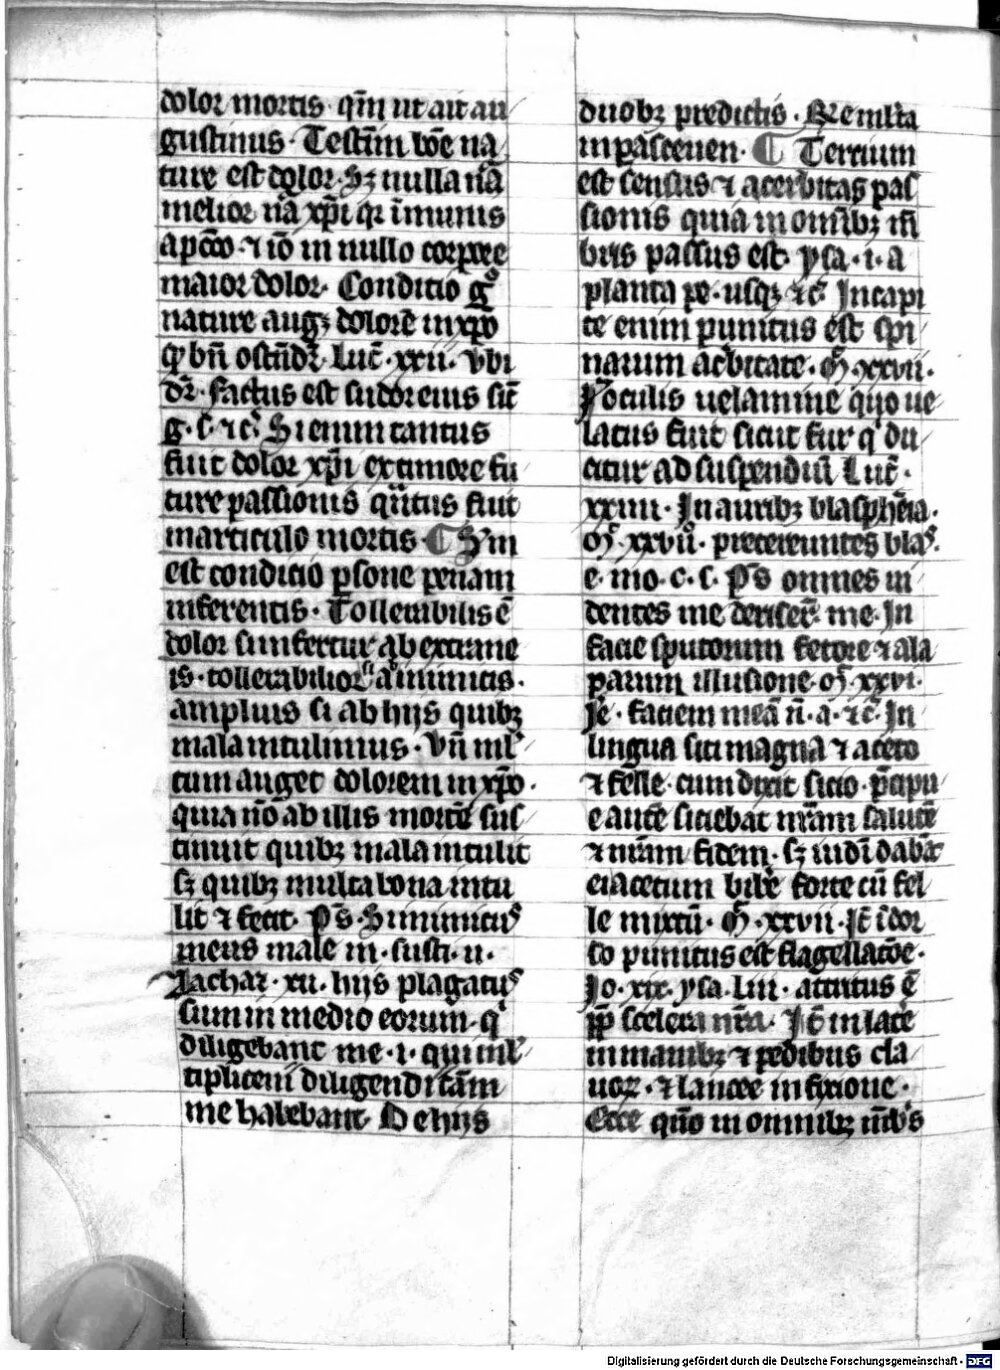 dolor mortis · qm̄ ut ait au
gustinus · Testm̄ bōe na
ture est dolor · Sꝫ nulla nā
melior nā xp̄i qr īmunis
a pctō · ⁊ iō in nullo corpore
maior dolor · Conditio gͦ
nature augꝫ dolorē in xp̄o
qd bn̄ ostn̄dr̄ · Luc̄ · xxii · vbi
dr̄ · factus est sudor eius sic̄
g · s · ⁊c̄ · Si enim tantus
fuit dolor xp̄i ex timore fu
ture passionis quātus fuit
in articulo mortis ¶ Scm̄
est conditio psone penam
inferentis · Tollerabilis ē
dolor si infertur ab extrane
is · tollerabilior si ab inimicis ·
amplius si ab hijs quibꝫ
mala intulimus · Vn̄ ml̄
tum auget dolorem in xp̄o ·
quia nō ab illis mortē sus
tinuit quibꝫ mala intulit
sꝫ quibꝫ multa bona intu
lit ⁊ fecit · Ps̄ · Si inimicus
meus male m · susti · u ·
Zachar · xii · hijs plagatus
sum in medio eorum · qi
diligebant me · i · qui ml̄
tipliceni diligendi cām
me habebant · De hijs
duobꝫ predictis · Re mlta
in pasceuen · ¶ Tercium
est sensus ⁊ acerbitas pas
sionis quia in omībꝫ m̄
bris passus est · ysa · i · a
planta pe · usqꝫ ⁊c̄ · In capi
te enim punitus est spi
narum acbitate · M̄ · xxvii ·
In oculis uelamine quo ue
latus fuit sicut fur qi du
citur ad suspendiū Luc̄ ·
xxiiii · In auribꝫ blasphēia ·
M̄ · xxvii · pretereuntes blas ·
e · mo · c · s · Ps̄ omnes ui
dentes me deriser̄ me · In
facie sputorum fetore ⁊ ala
parum illusione · M̄ · xxvi ·
Je · faciem meā n̄ · a · ⁊c̄ · In
lingua siti magna ⁊ aceto
⁊ felle · cum dixit sicio · p̄cipu
e autē siciebat nr̄am salutē
⁊ nr̄am fidem · sꝫ iudī dabāt
ei acetum bibe forte cū fel
le mixtū · M̄ · xxvii · It̄ ī dor
so punitus est flagellacōe ·
Jo · xix · ysa · Liii · attritus ē
pp̄ scelera nr̄a · It̄ in latē
in manibꝫ ⁊ pedibus cla
uorꝫ · ⁊ lancee infixione ·
Ecce quō in omnibꝫ mbs̄